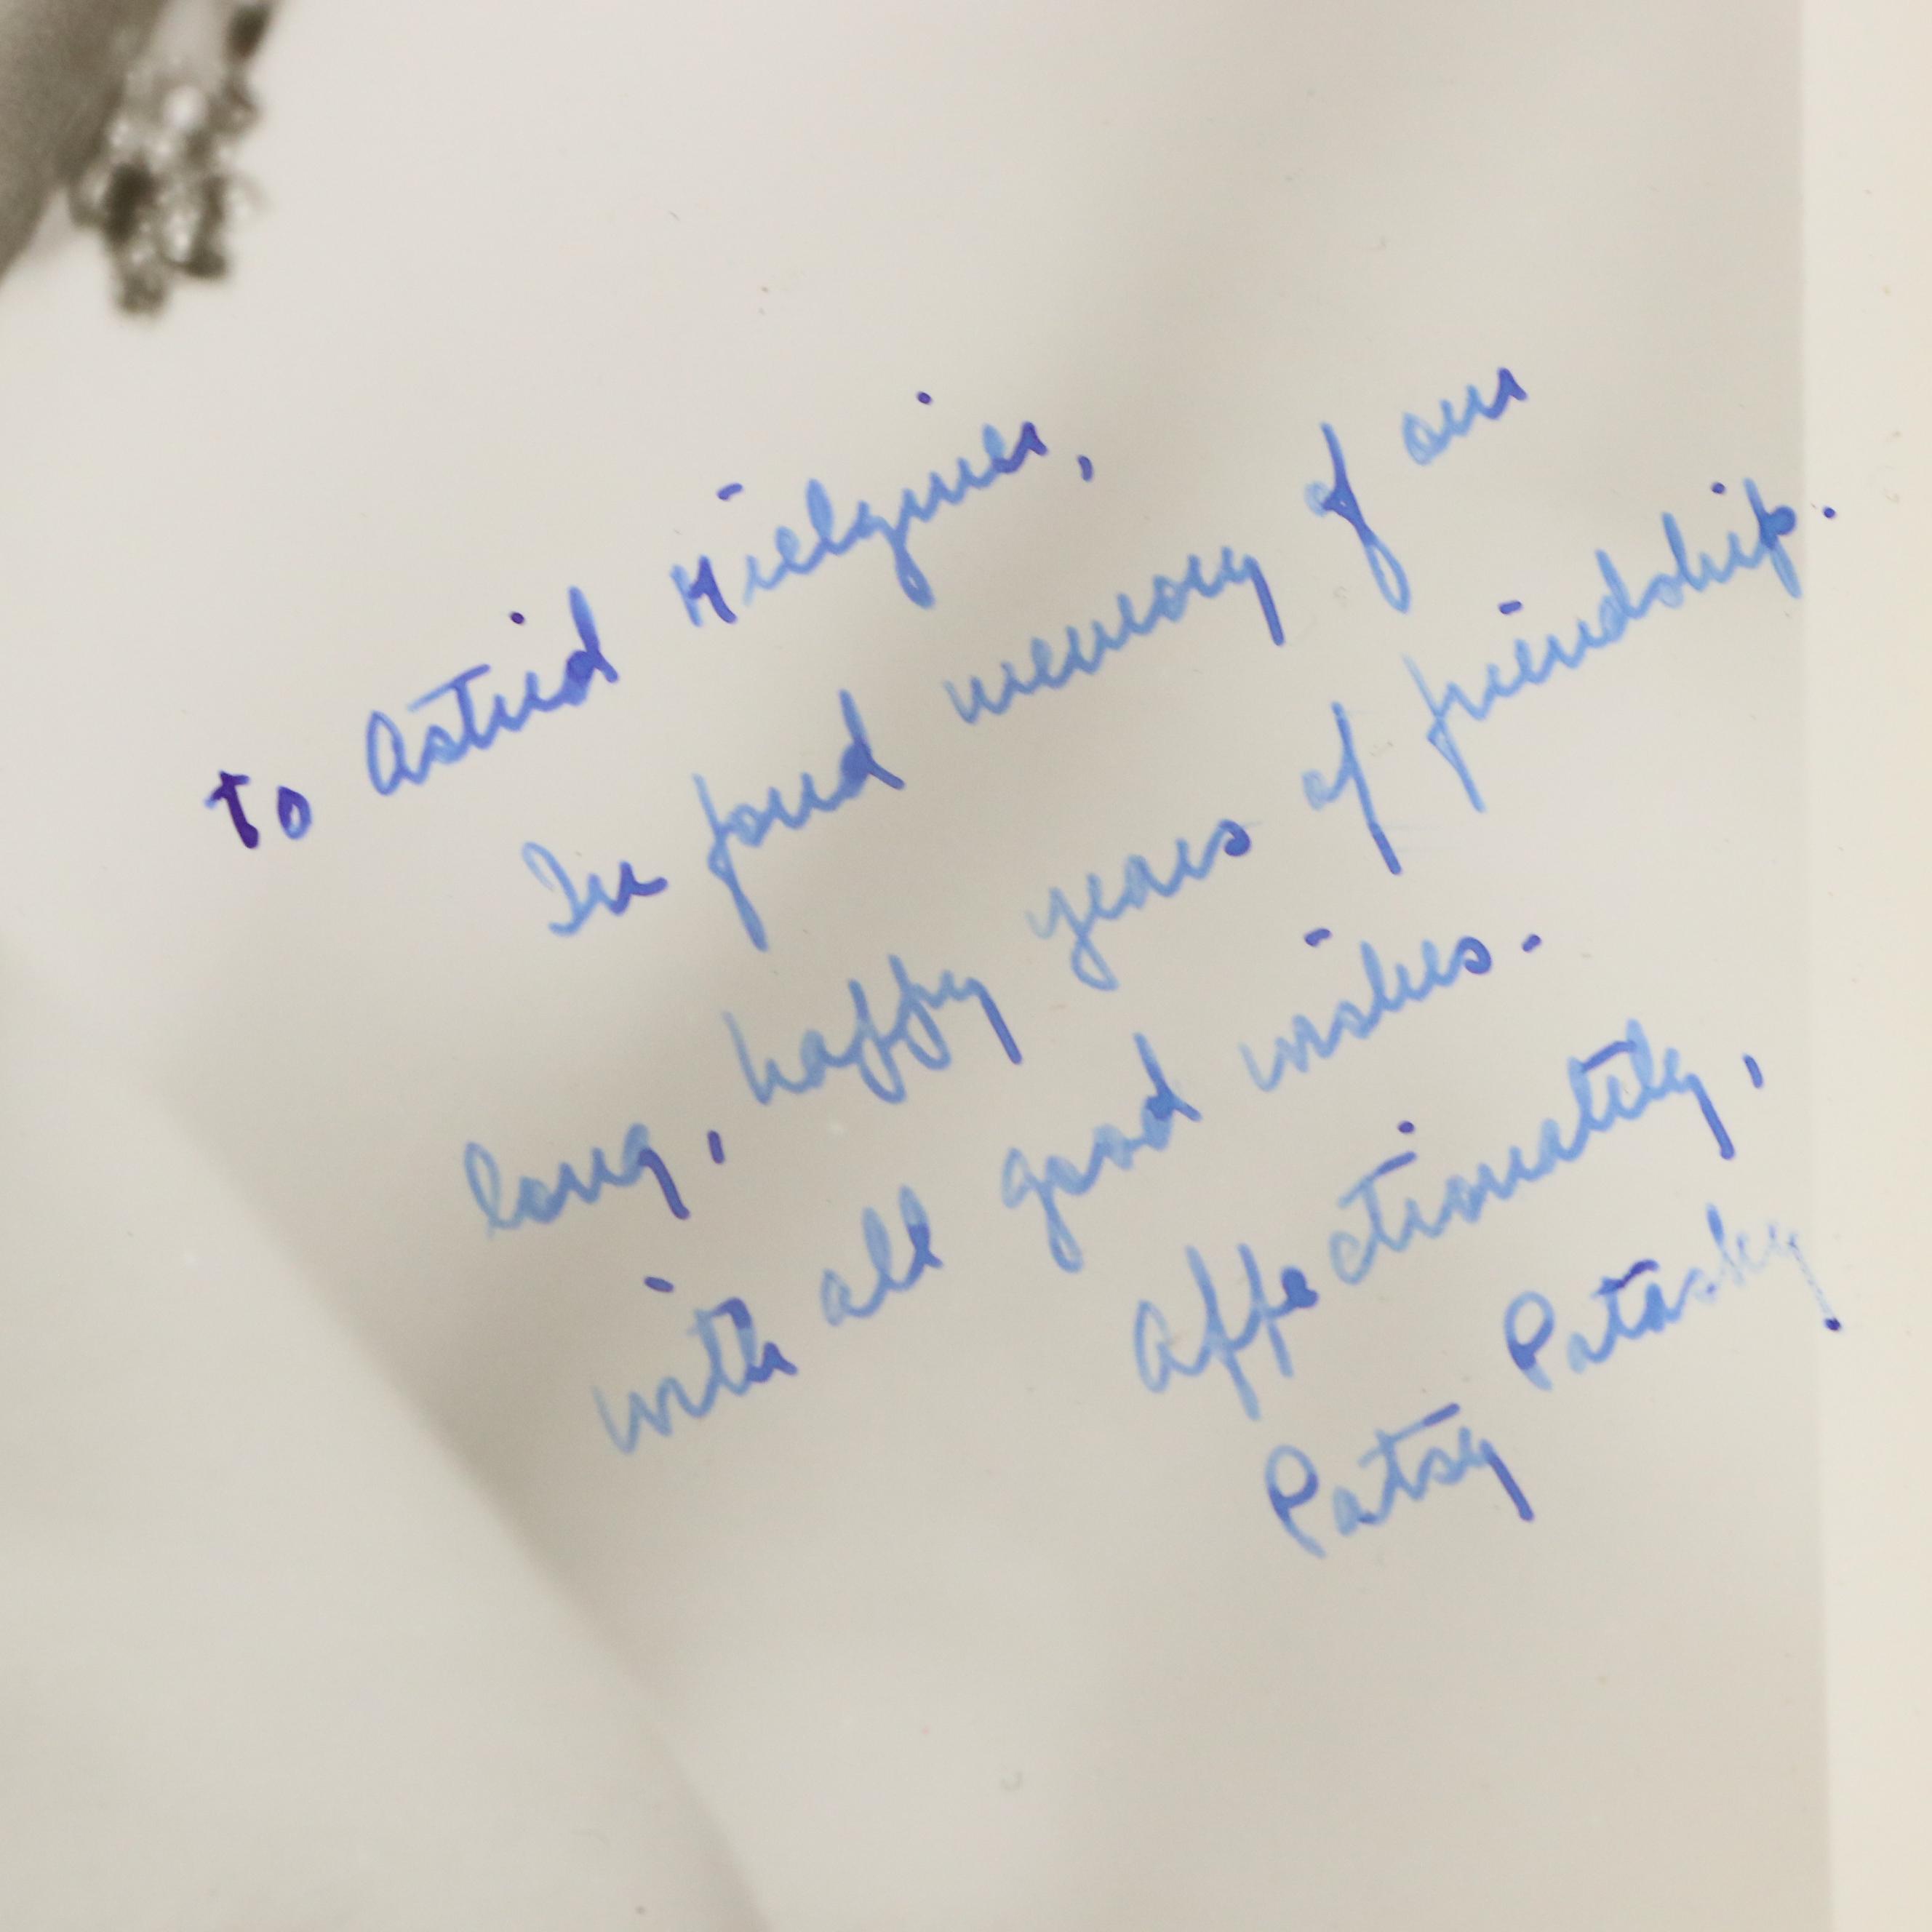 to Astrid Mielziner,
In fond memory of our
long, happy years of friendship.
with all good wishes.
Affectionately,
Patsy Pataky.